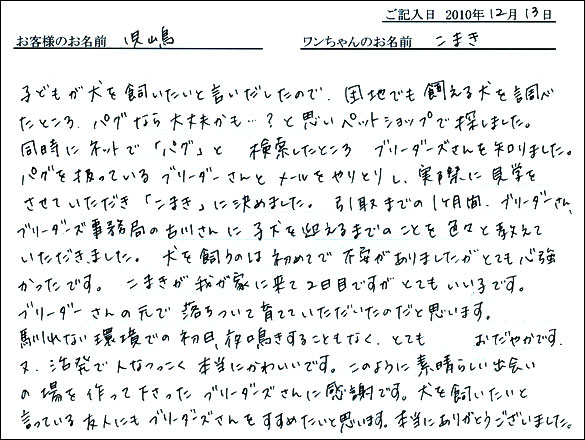 ご記入日 2010年12月13日
お客様のお名前 児嶋 ワンちゃんのお名前 こまき
子どもが犬を飼いたいと言いだしたので、団地でも飼える犬を調べ
たところ、パグなら大丈夫かも…？と思いペットショップで探しました。
同時にネットで「パグ」と 検索したところ ブリーダーズさんを知りました。
パグを扱っているブリーダーさんとメールをやりとりし、実際に見学を
させていただき「こまき」に決めました。 引取までの1ヶ月間、ブリーダーさん、
ブリーダーズ事務局の古川さんに子犬を迎えるまでのことを色々と教えて
いただきました。 犬を飼うのは初めてで不安がありましたがとても心強
かったです。 こまきが我が家に来て2日目ですがとてもいい子です。
ブリーダーさんの元で落ちついて育てていただいたのだと思います。
馴れない環境での初日、夜鳴きすることもなく、とても おだやかです。
又、活発で人なつっこく本当にかわいいです。このように素晴らしい出会い
の場を作って下さったブリーダーズさんに感謝です。犬を飼いたいと
言っている友人にもブリーダーズさんをすすめたいと思います。本当にありがとうございました。